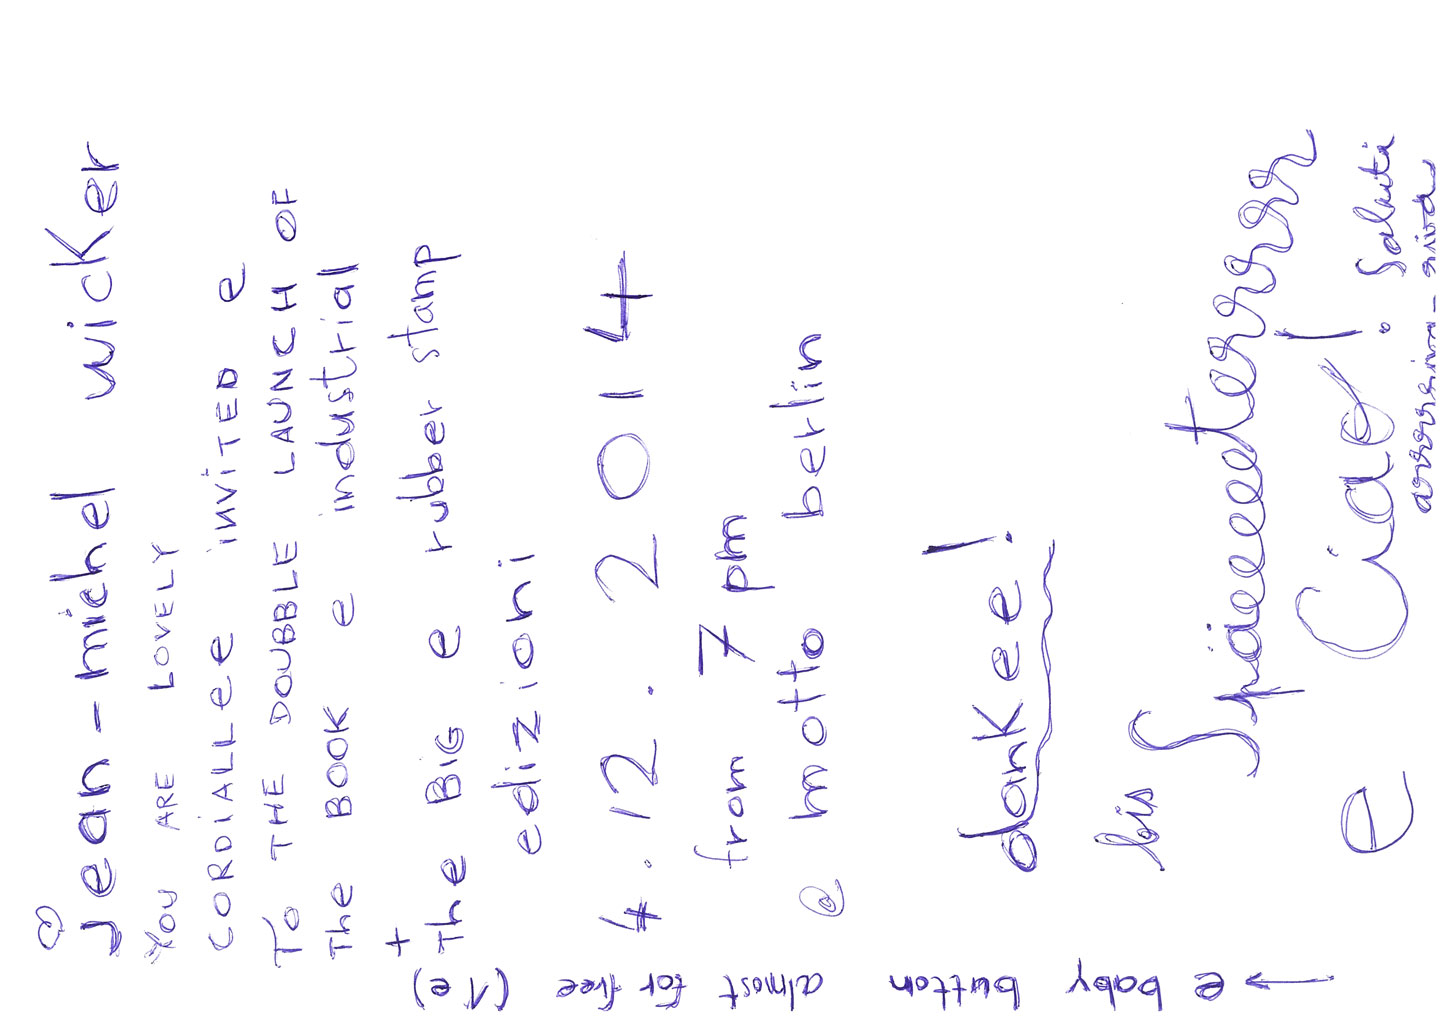 Jean-michel wicker
YOU ARE LOVELY
CORDIALLee iNViTED e
To THE DOUBBLE LAUNCH OF
The BOOK e industrial
+
The BIG e rubber stamp
edizioni
4.12.2014
from 7 pm
@ motto berlin
dankee!
bis Späeeeeterrrrrr
e Ciao! Saluti
→ e baby button almost for free (1e)